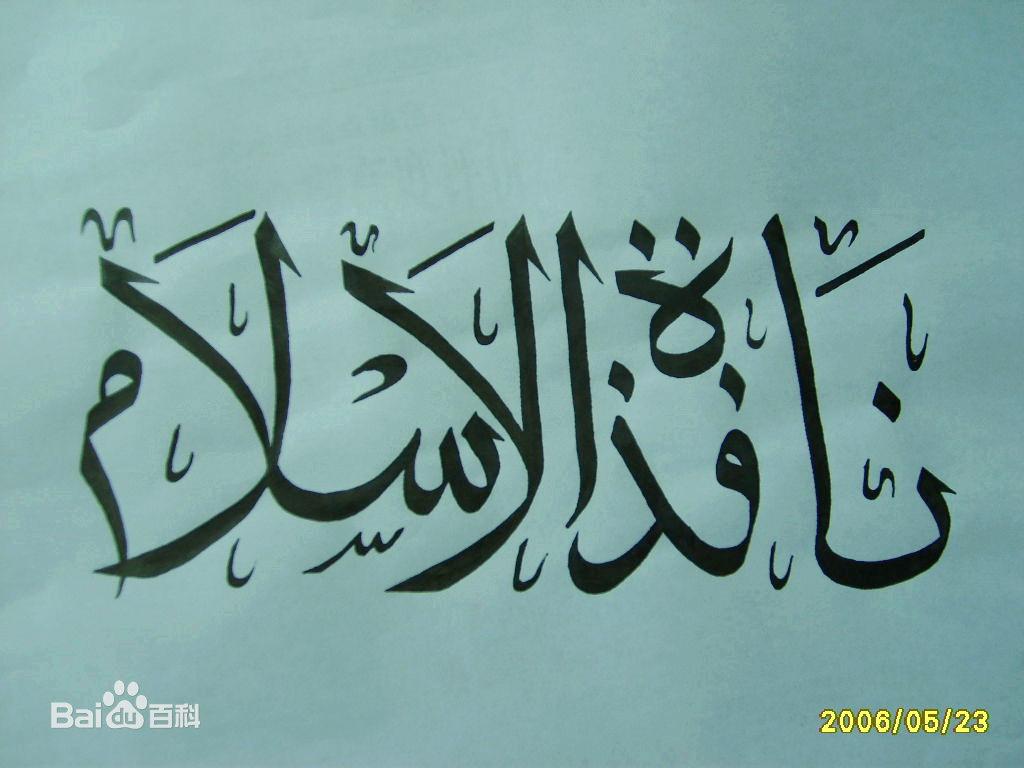 نافذة الاسلام
Bai du 百科
2006/05/23